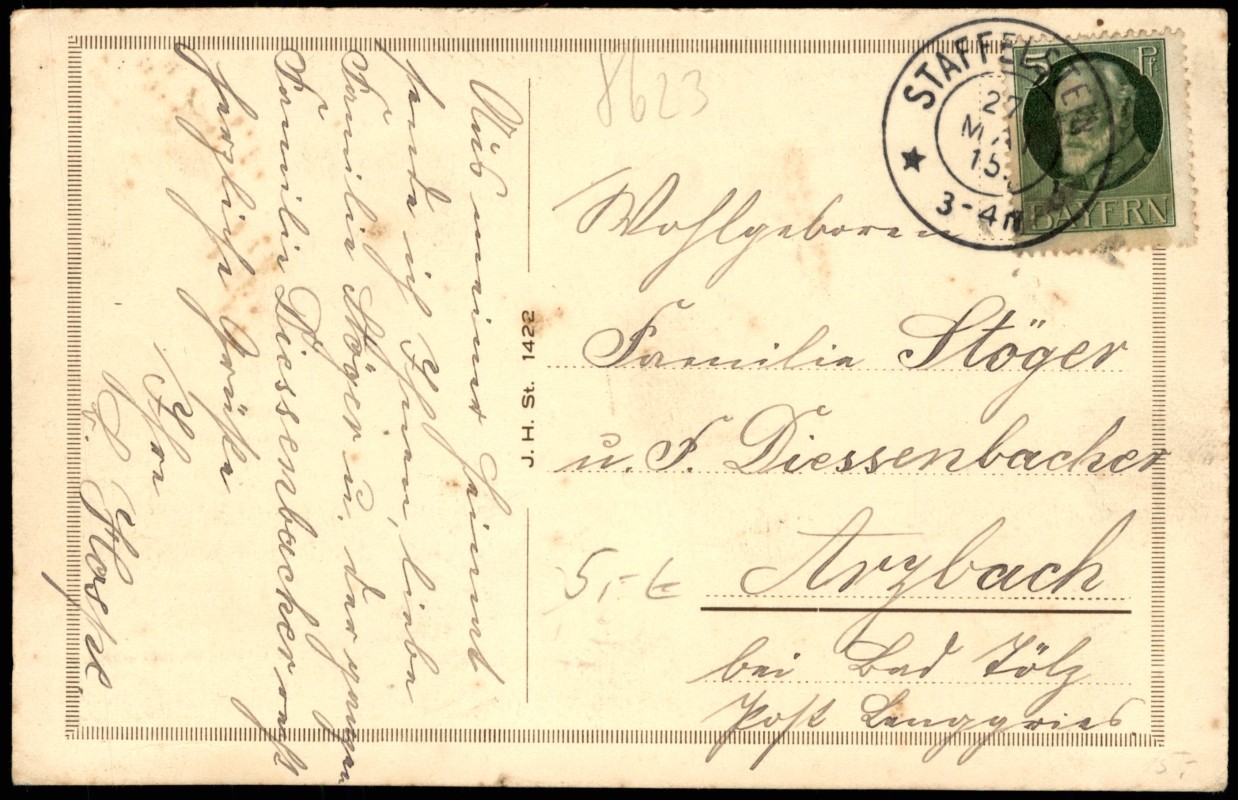 8623
STAFFELSTEIN
27
MAI
15
3-4 N
5 Pf
BAYERN
Wohlgeboren
Familie Stöger
u. F. Diessenbacher
Arzbach
bei Bad Tölz
Post Lenggries
5,- €
J. H. St. 1422
Aus meiner Heimat
sende ich Ihnen, liebe
Familie Stöger u. der ganzen
Familie Diessenbacher recht
herzliche Grüße
Ihre
15,-